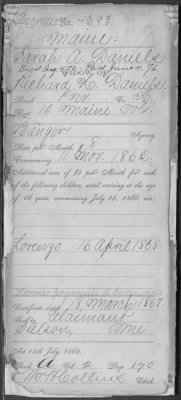 No. 4,693
Maine
Sarah A. Daniels
Richard H. Daniels
Rank Pvt. Co. H.
Regt 15 Maine Vols.
Bangor Agency
Rate per Month $ 8.
Commencing 11 Nov. 1862.
Additional sum of $2 per Month for each
of the following children, until arriving at the age
of 16 years, commencing July 25, 1866, viz:
Lorenzo 16 April 1868.
Certificate dated 18 March 1867
Claimant
Me
Act 14th July, 1862.
Book A Vol. 2 Page 170
Clerk.